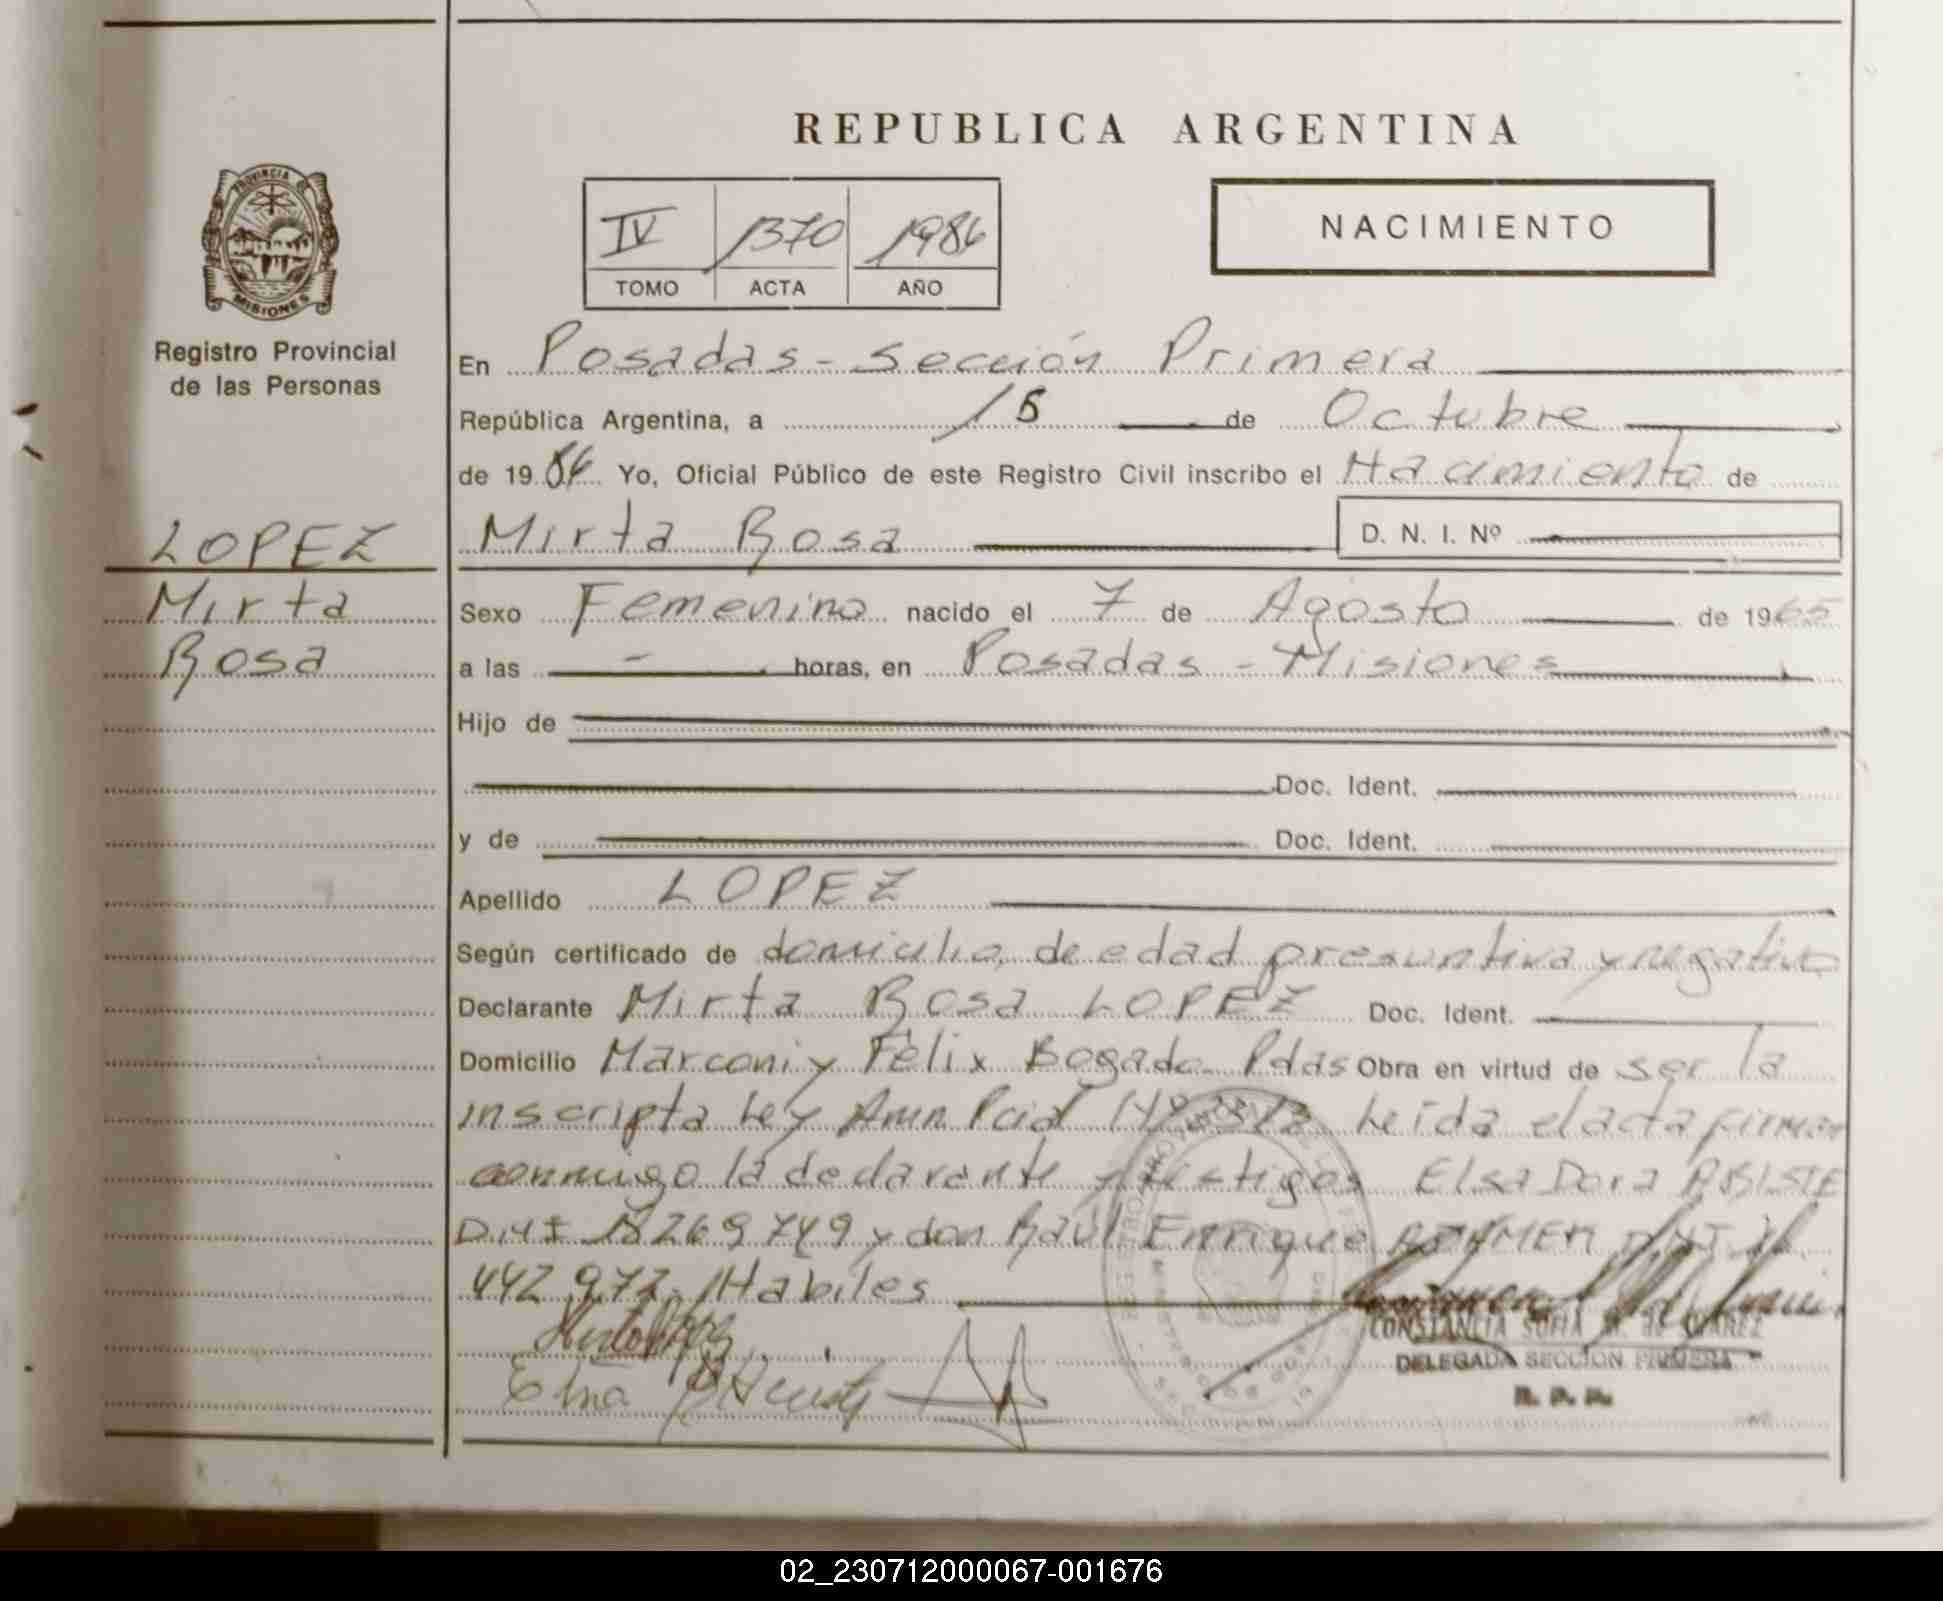 REPUBLICA ARGENTINA
PROVINCIA DE
MISIONES
Registro Provincial
de las Personas
IV 1370 1986
TOMO ACTA AÑO
NACIMIENTO
En Posadas - Sección Primera
República Argentina, a 15 de Octubre
de 1986 Yo, Oficial Público de este Registro Civil inscribo el Nacimiento de
LOPEZ
Mirta
Rosa
Mirta Rosa D. N. I. Nº
Sexo Femenino nacido el 7 de Agosto de 1965
a las - horas, en Posadas - Misiones
Hijo de
Doc. Ident.
y de Doc. Ident.
Apellido LOPEZ
Según certificado de domicilio, de edad presuntiva y negativo
Declarante Mirta Rosa LOPEZ Doc. Ident.
Domicilio Marconi y Félix Bogado Pdas Obra en virtud de ser la
inscripta Ley Leída el acta firman
conmigo la declarante y testigos Elsa Dora
269 749 y don Raúl Enrique
442 972 Habiles
CONSTANCIA SOFIA M. de SUAREZ
DELEGADA SECCION PRIMERA
R. P. P.
02_230712000067-001676